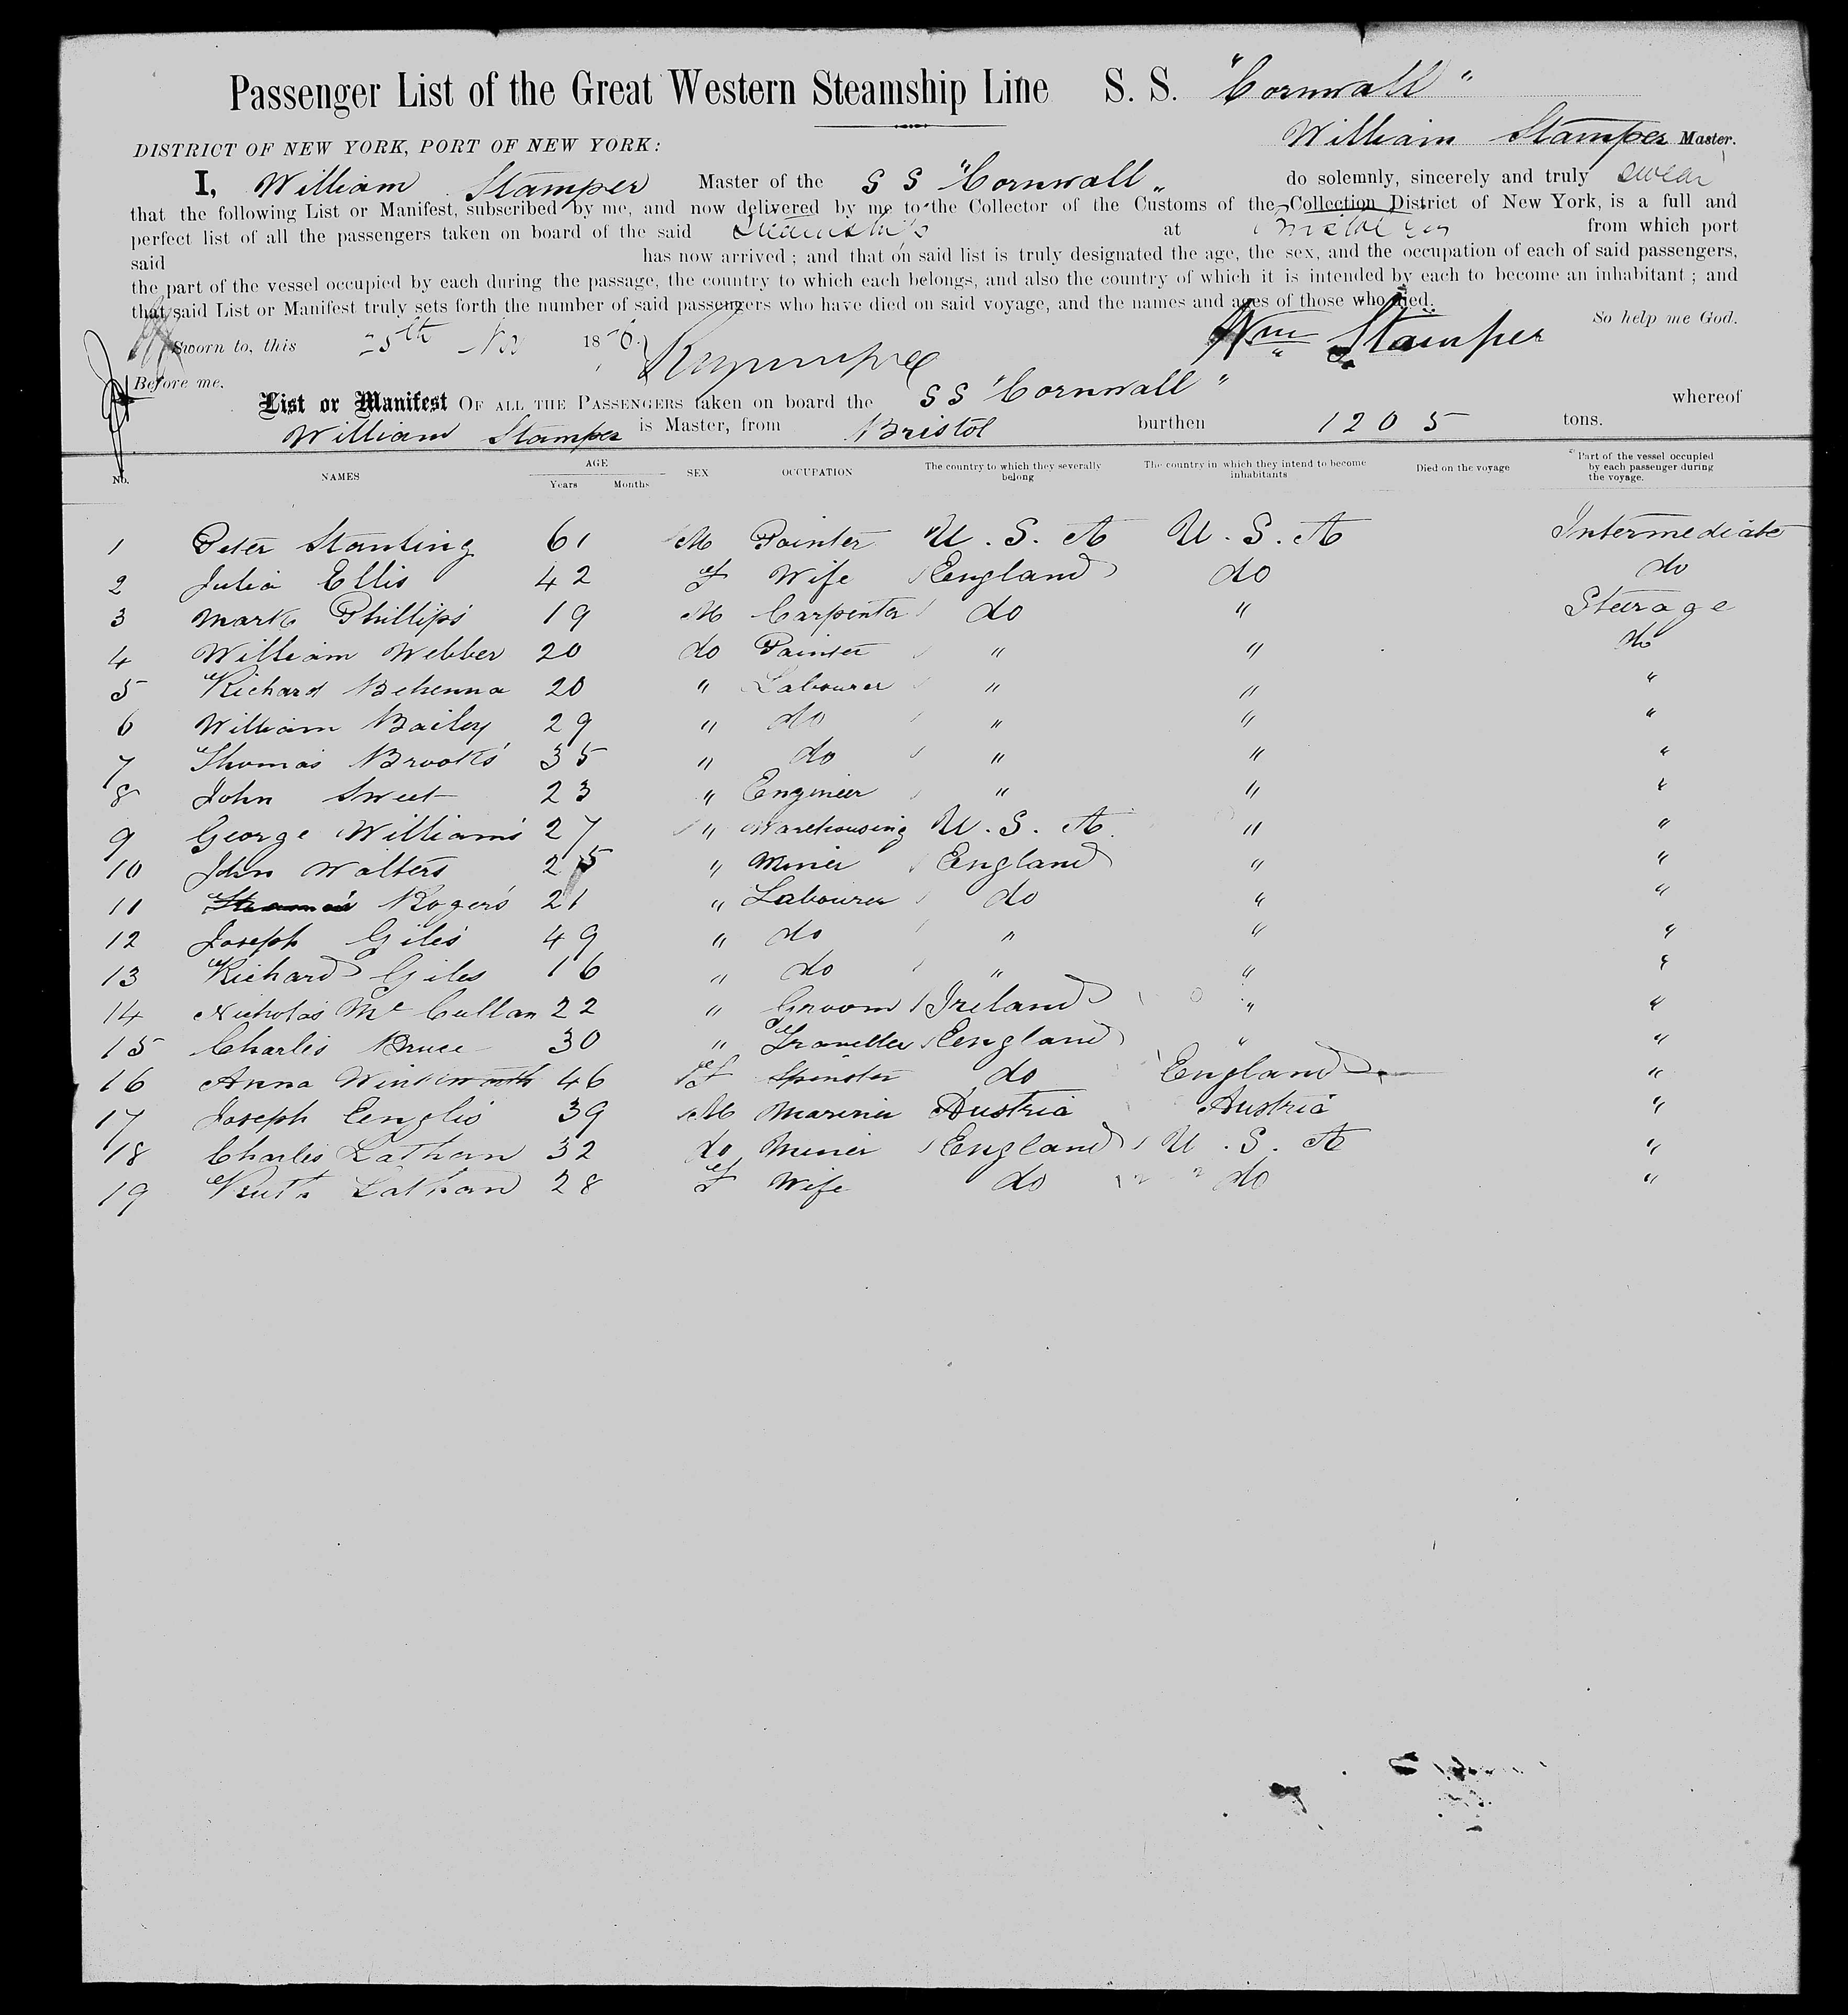 Passenger List of the Great Western Steamship Line S. S. "Cornwall"
DISTRICT OF NEW YORK, PORT OF NEW YORK: William Stamper Master.
I, William Stamper Master of the S S "Cornwall" do solemnly, sincerely and truly swear
that the following List or Manifest, subscribed by me, and now delivered by me to the Collector of the Customs of the Collection District of New York, is a full and
perfect list of all the passengers taken on board of the said Steamship at from which port
said has now arrived; and that on said list is truly designated the age, the sex, and the occupation of each of said passengers,
the part of the vessel occupied by each during the passage, the country to which each belongs, and also the country of which it is intended by each to become an inhabitant; and
that said List or Manifest truly sets forth the number of said passengers who have died on said voyage, and the names and ages of those who died.
So help me God.
Sworn to, this 25th Nov 18 Wm Stamper
Before me.
List or Manifest OF ALL THE PASSENGERS taken on board the S S "Cornwall" whereof
William Stamper is Master, from Bristol burthen 1205 tons.
No. NAMES AGE Years Months SEX OCCUPATION The country to which they severally belong The country in which they intend to become inhabitants Died on the voyage Part of the vessel occupied by each passenger during the voyage.
1 Peter Stanting 61 M Painter U. S. A U. S. A Intermediate
2 Julia Ellis 42 F Wife England do do
3 Mark Phillips 19 M Carpenter do " Steerage
4 William Webber 20 do Painter " " do
5 Richard Behenna 20 " Labourer " " "
6 William Bailey 29 " do " " "
7 Thomas Brooks 35 " do " " "
8 John Sweet 23 " Engineer " " "
9 George Williams 27 " Warehousing U. S. A. " "
10 John Walters 25 " Miner England " "
11 Rogers 21 " Labourer do " "
12 Joseph Giles 49 " do " " "
13 Richard Giles 16 " do " " "
14 Nicholas Mc Cullan 22 " Groom Ireland " "
15 Charles Bruce 30 " Traveller England " "
16 Anna Winkworth 46 F Spinster do England "
17 Joseph Englis 39 M Mariner Austria Austria "
18 Charles Lathan 32 do Miner England U. S. A "
19 Ruth Lathan 28 F Wife do do "